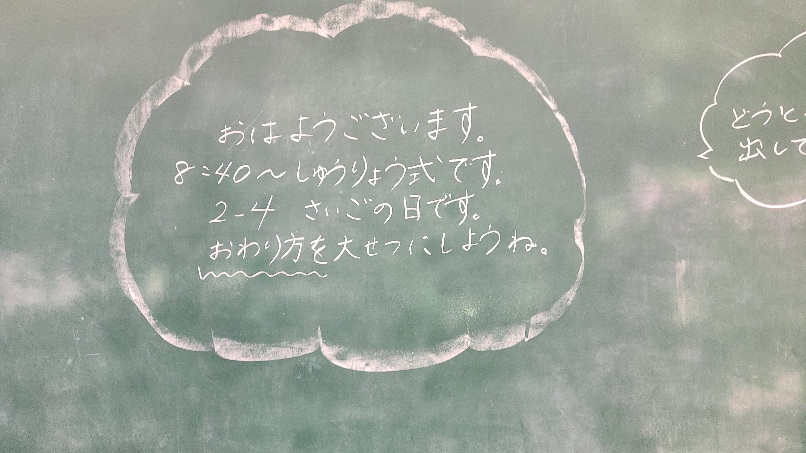 おはようございます。
8:40～しゅうりょう式です。
2-4 さいごの日です。
おわり方を大せつにしようね。
どうと
出して